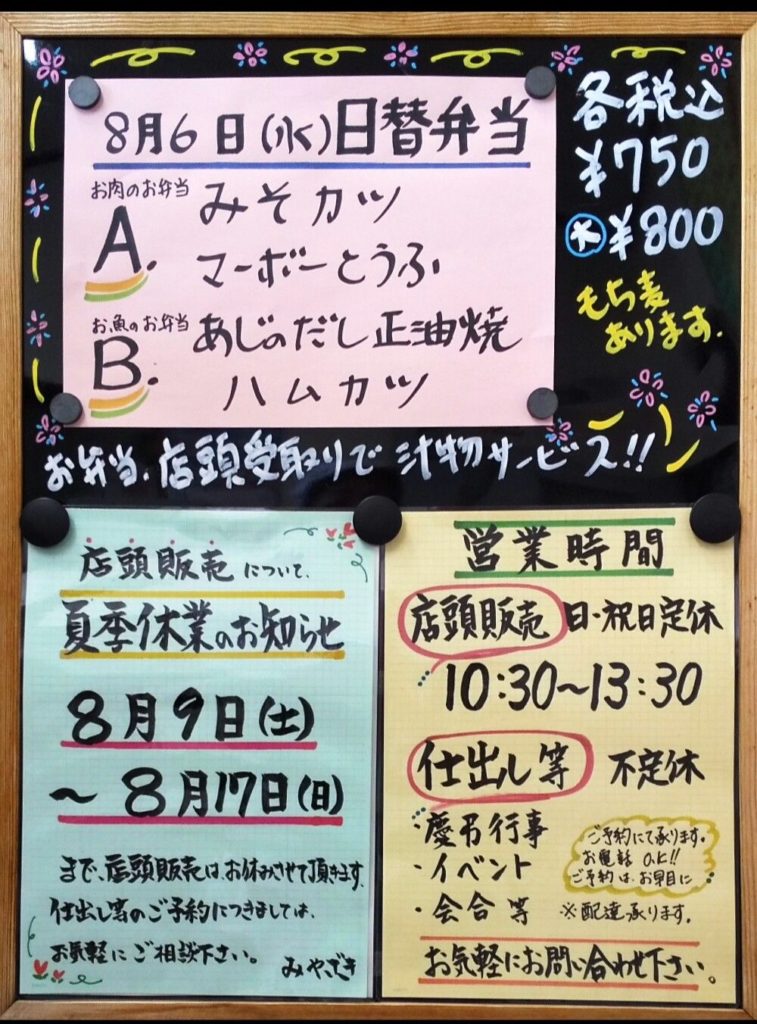 8月6日(水)日替弁当
お肉のお弁当
A.
みそカツ
マーボーとうふ
お魚のお弁当
B.
あじのだし正油焼
ハムカツ
各税込
¥750
大¥800
もち麦
あります.
お弁当、店頭受取りで汁物サービス!!
店頭販売について、
夏季休業のお知らせ
8月9日(土)
〜8月17日(日)
まで、店頭販売は、お休みさせて頂きます。
仕出し等のご予約につきましては、
お気軽にご相談下さい。 みやざき
営業時間
店頭販売 日・祝日定休
10:30〜13:30
仕出し等 不定休
・慶弔行事
・イベント
・会合等
ご予約にて承ります。
お電話O.K!!
ご予約は、お早目に
※配達承ります。
お気軽にお問い合わせ下さい。